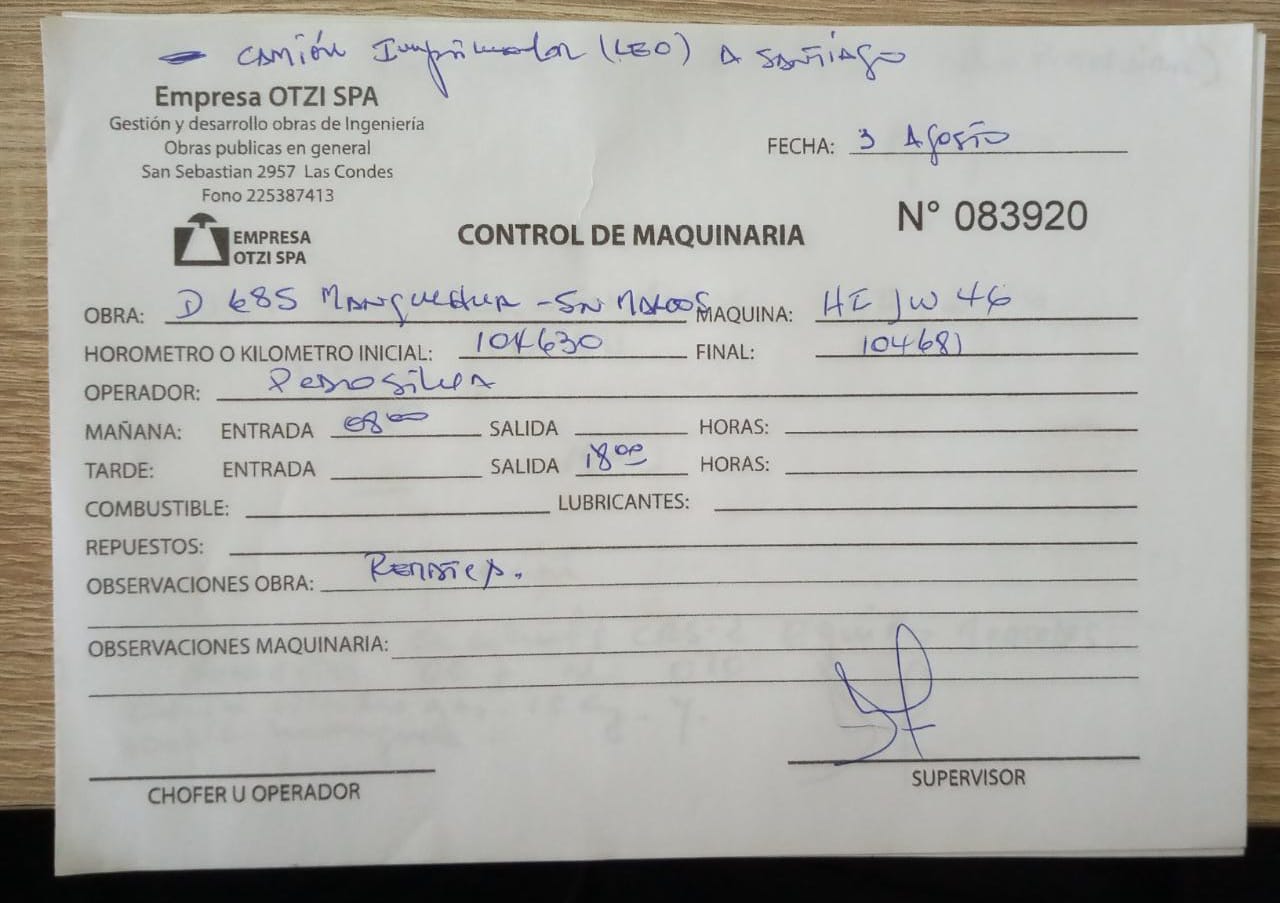 - CAMIÓN Imprimador (LEO) A SANTIAGO
Empresa OTZI SPA
Gestión y desarrollo obras de Ingeniería
Obras publicas en general
San Sebastian 2957 Las Condes
Fono 225387413
FECHA: 3 Agosto
N° 083920
EMPRESA
OTZI SPA
CONTROL DE MAQUINARIA
OBRA: D 685 MANQUEHUA - SN MARCOS MAQUINA: HI JW 46
HOROMETRO O KILOMETRO INICIAL: 104630 FINAL: 104681
OPERADOR: Pedro Silva
MAÑANA: ENTRADA 08 00 SALIDA HORAS:
TARDE: ENTRADA SALIDA 18 00 HORAS:
COMBUSTIBLE: LUBRICANTES:
REPUESTOS:
OBSERVACIONES OBRA:
OBSERVACIONES MAQUINARIA:
CHOFER U OPERADOR
SUPERVISOR